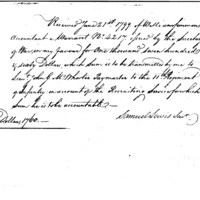 Received June 21st 1799 of William Simmons
Accountant a Warrant No. 4217 issued by the Secretary
of War, in my favour for One thousand Seven hundred
& sixty Dollars, which Sum is to be transmitted by me to
Lieut. John G. McWhorter Paymaster to the 11th Regiment
of Infantry on account of the Recruiting Service, for which
Sum he is to be accountable.
Samuel Lewis Senr.
Dollars, 1760.